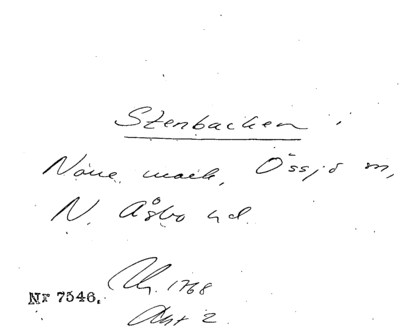 Stenbacken i
Nõue mark, Össjö sn,
N. Åsbo hd.
Nr 7546.
1768
Akt 2